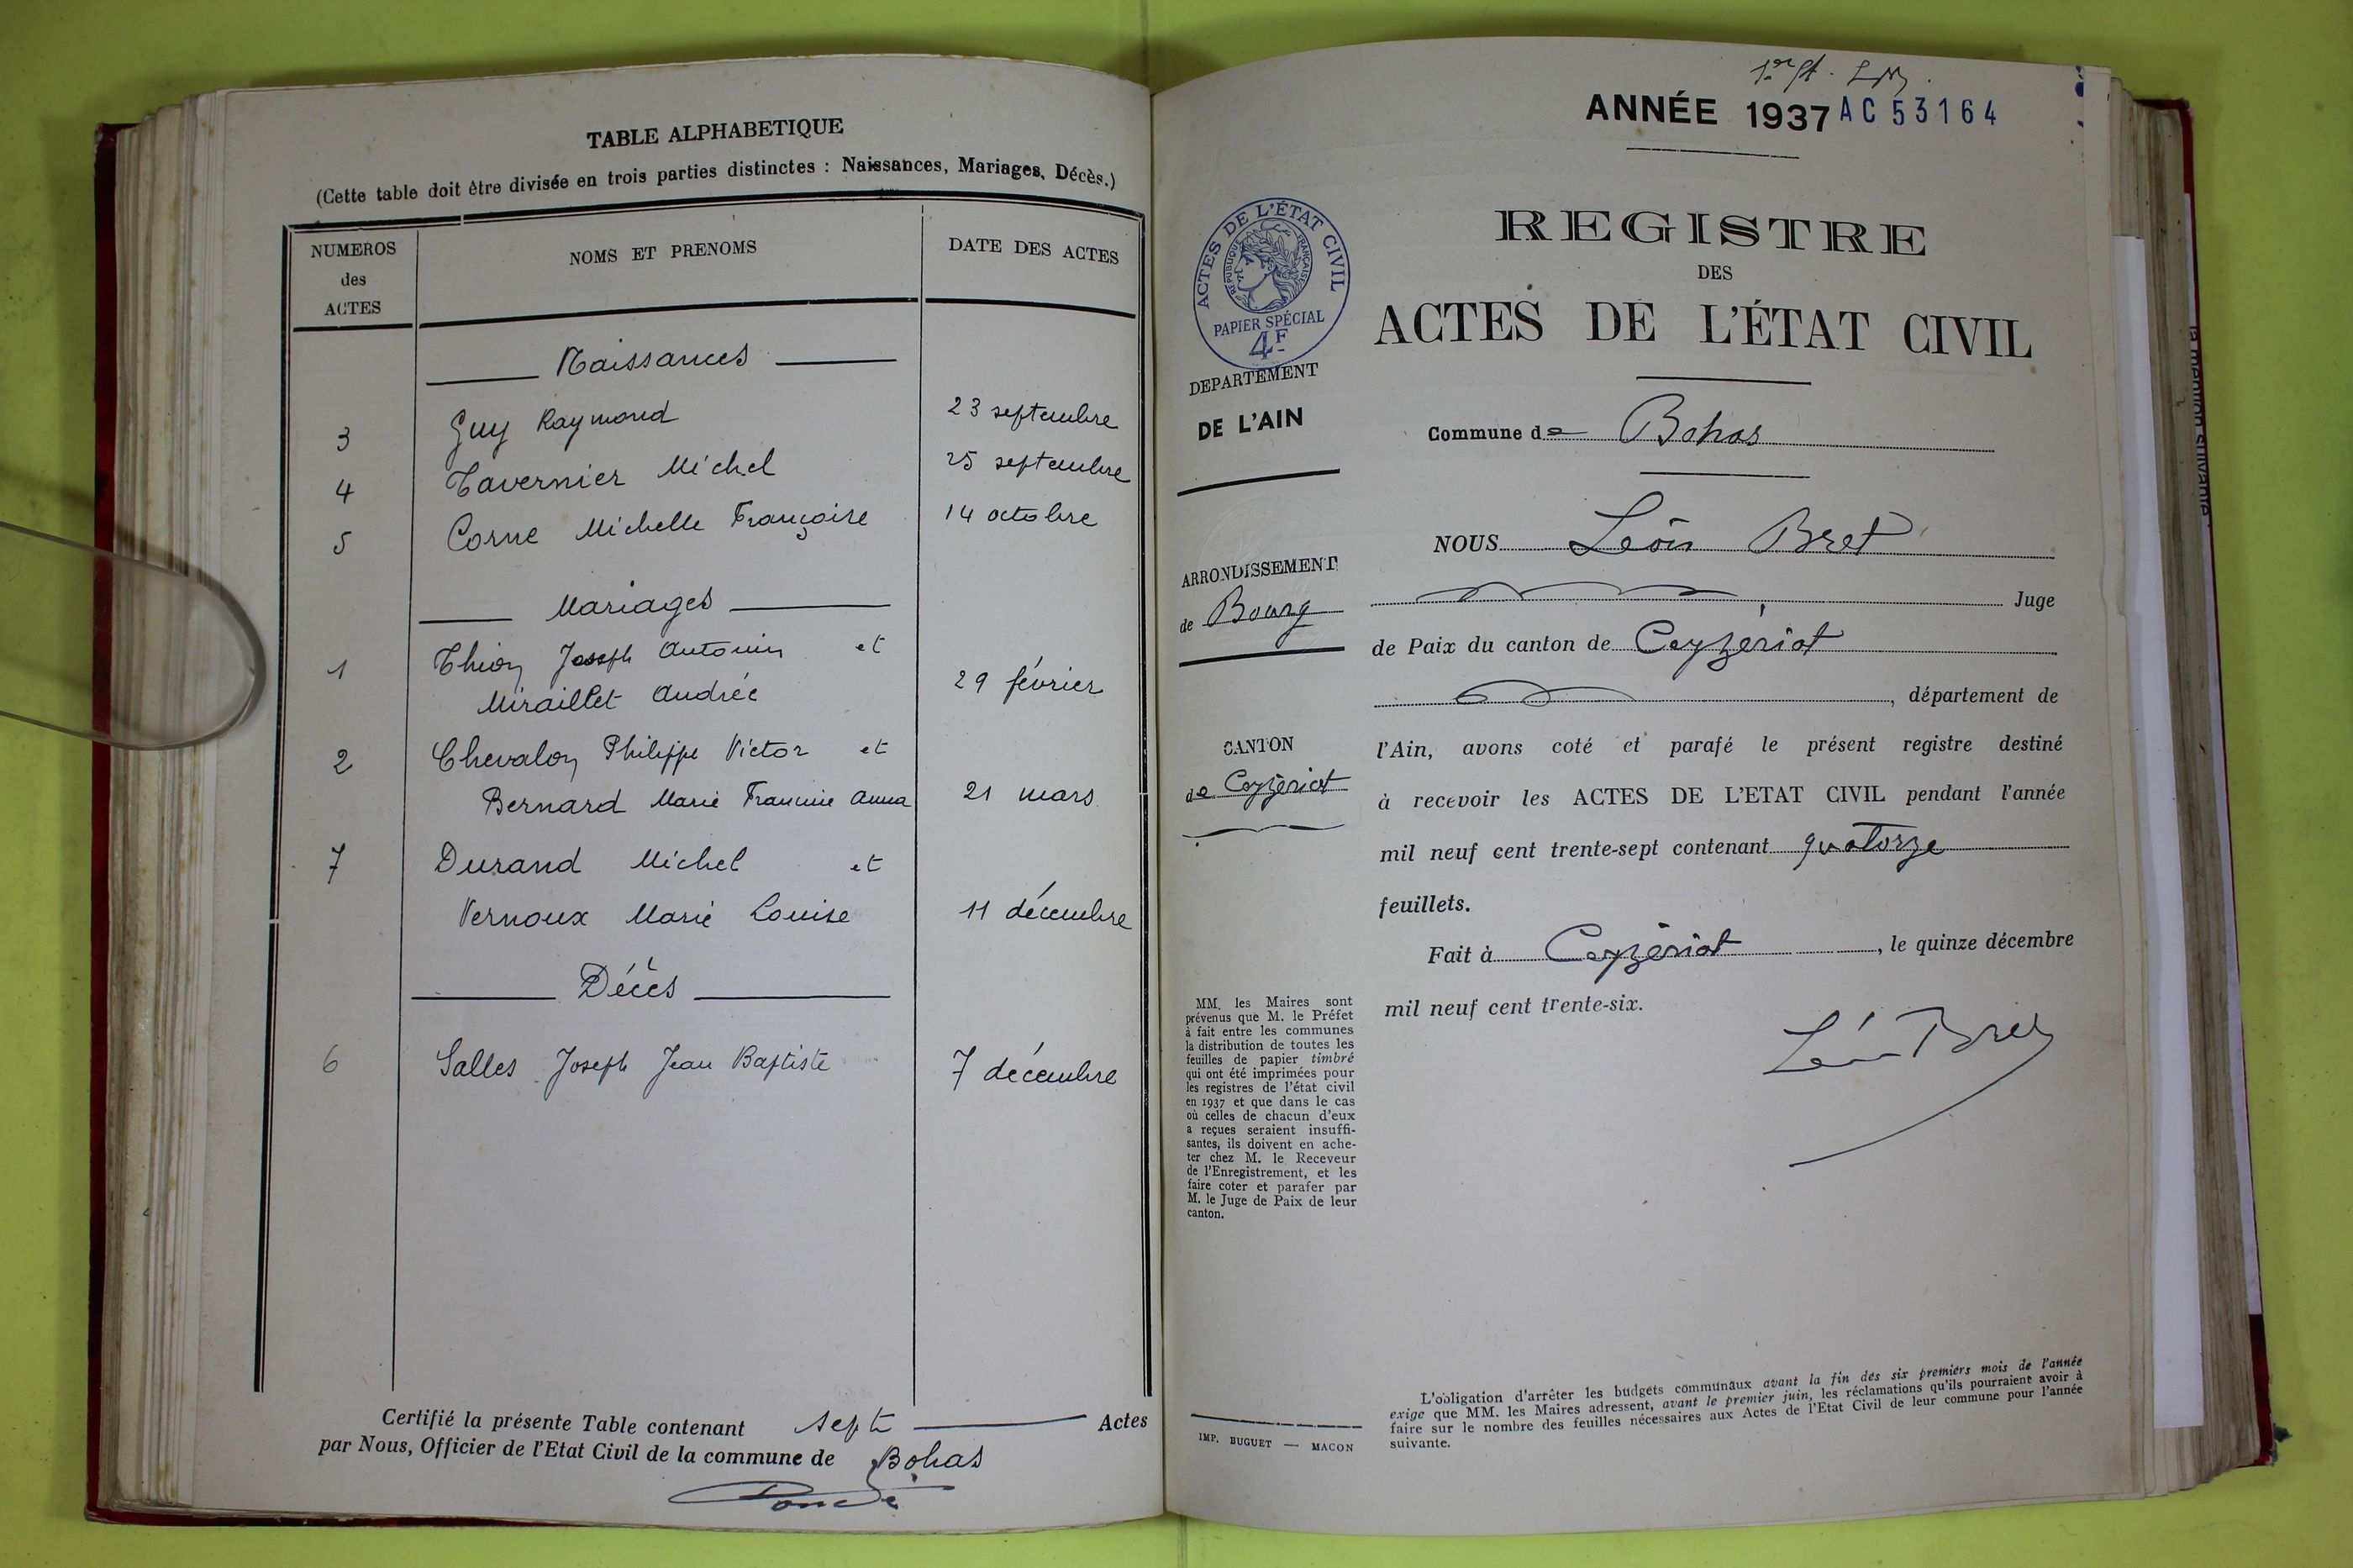 TABLE ALPHABETIQUE
(Cette table doit être divisée en trois parties distinctes : Naissances, Mariages, Décès.)
NUMEROS
des
ACTES
NOMS ET PRENOMS
DATE DES ACTES
Naissances
3 Guy Raymond 23 septembre
4 Tavernier Michel 25 septembre
5 Corne Michelle Françoise 14 octobre
Mariages
1 Thion Joseph Antonin et
Miraillet Andrée 29 février
2 Chevalon Philippe Victor et
Bernard Marie Francine Anna 21 mars
7 Durand Michel et
Vernoux Marie Louise 11 décembre
Décès
6 Salles Joseph Jean Baptiste 7 décembre
Certifié la présente Table contenant sept Actes
par Nous, Officier de l'Etat Civil de la commune de Bohas
ANNÉE 1937 AC 53164
ACTES DE L'ÉTAT CIVIL
RÉPUBLIQUE FRANÇAISE
PAPIER SPÉCIAL
4F
DEPARTEMENT
DE L'AIN
ARRONDISSEMENT
de Bourg
CANTON
de Ceyzériat
MM. les Maires sont
prévenus que M. le Préfet
à fait entre les communes
la distribution de toutes les
feuilles de papier timbré
qui ont été imprimées pour
les registres de l'état civil
en 1937 et que dans le cas
où celles de chacun d'eux
a reçues seraient insuffi-
santes, ils doivent en ache-
ter chez M. le Receveur
de l'Enregistrement, et les
faire coter et parafer par
M. le Juge de Paix de leur
canton.
IMP. BUGUET — MACON
REGISTRE
DES
ACTES DE L'ÉTAT CIVIL
Commune de Bohas
NOUS Léon Bret
Juge
de Paix du canton de Ceyzériat
, département de
l'Ain, avons coté et parafé le présent registre destiné
à recevoir les ACTES DE L'ETAT CIVIL pendant l'année
mil neuf cent trente-sept contenant quatorze
feuillets.
Fait à Ceyzériat, le quinze décembre
mil neuf cent trente-six.
Léon Bret
L'obligation d'arrêter les budgets communaux avant la fin des six premiers mois de l'année
exige que MM. les Maires adressent, avant le premier juin, les réclamations qu'ils pourraient avoir à
faire sur le nombre des feuilles nécessaires aux Actes de l'Etat Civil de leur commune pour l'année
suivante.